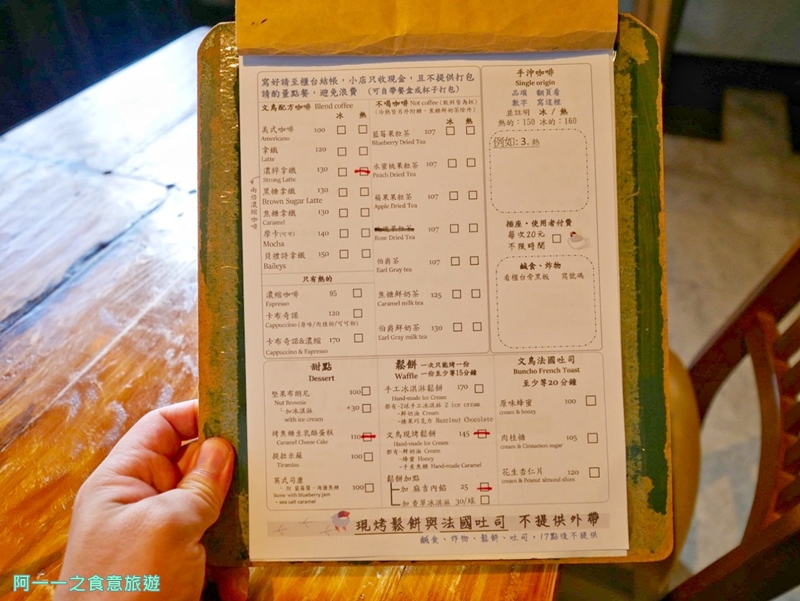 寫好請至櫃台結帳，小店只收現金，且不提供打包
請酌量點餐，避免浪費 （可自帶餐盒或杯子打包）
文鳥配方咖啡 Blend coffee
冰 熱
美式咖啡 100
Americano
拿鐵 120
Latte
濃粹拿鐵 130
Strong Latte
兩倍濃縮咖啡
黑糖拿鐵 130
Brown Sugar Latte
焦糖拿鐵 130
Caramel
摩卡(可可) 140
Mocha
貝禮詩拿鐵 150
Baileys
只有熱的
濃縮咖啡 95
Espresso
卡布奇諾 120
Cappuccino (原味/肉桂粉/可可粉)
卡布奇諾&濃縮 170
Cappuccino & Espresso
不喝咖啡 Not coffee (飲料皆為杯)
冰 熱
藍莓果粒茶 107
Blueberry Dried Tea
水蜜桃果粒茶 107
Peach Dried Tea
蘋果果粒茶 107
Apple Dried Tea
107
Rose Dried Tea
伯爵茶 107
Earl Gray tea
焦糖鮮奶茶 125
Caramel milk tea
伯爵鮮奶茶 130
Earl Gray milk tea
手沖咖啡
Single origin
品項 翻頁看
數字 寫這裡
並註明 冰 / 熱
熱的：150 冰的：160
例如: 3. 熱
插座 • 使用者付費
每次20元
不限時間
鹹食、炸物
看櫃台旁黑板 寫號碼
甜點
Dessert
堅果布朗尼 100
Nut Brownie
加冰淇淋 +30
with ice cream
焦糖生乳酪蛋糕 110
Caramel Cheese Cake
提拉米蘇 100
Tiramisu
英式司康 100
Scone with blueberry jam
+ sea salt caramel
鬆餅 一次只能烤一份
Waffle 一份至少等15分鐘
手工冰淇淋鬆餅 170
Hand-made Ice Cream
都有-2球手工冰淇淋 2 ice cream
-鮮奶油 Cream
-榛果巧克力 Hazelnut Chocolate
文鳥現烤鬆餅 145
Hand-made Ice Cream
都有-鮮奶油 Cream
-蜂蜜 Honey
-手煮焦糖 Hand-made Caramel
鬆餅加點
加 麻吉內餡 25
加 香草冰淇淋 30/球
文鳥法國吐司
Buncho French Toast
至少等20分鐘
原味蜂蜜 100
cream & honey
肉桂糖 105
cream & Cinnamon sugar
花生杏仁片 120
cream & Peanut almond slices
現烤鬆餅與法國吐司 不提供外帶
鹹食、炸物、鬆餅、吐司，17點後不提供
阿一一之食意旅遊